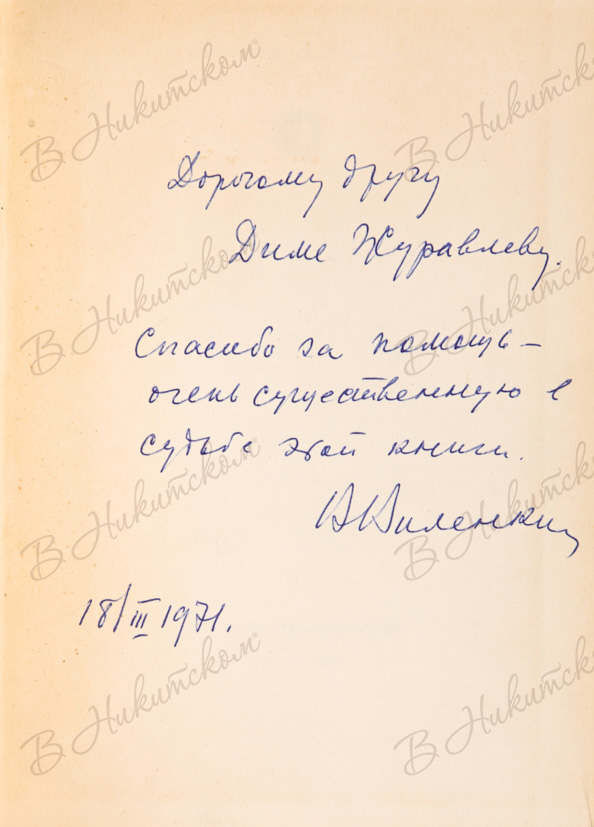 Дорогому другу
Диме Журавлеву.
Спасибо за помощь –
очень существенную в
судьбе этой книги.
В Виленкин
18/III 1971.
В Никитском
В Никитском
В Никитском
В Никитском
В Никитском
В Никитском
В Никитском
В Никитском